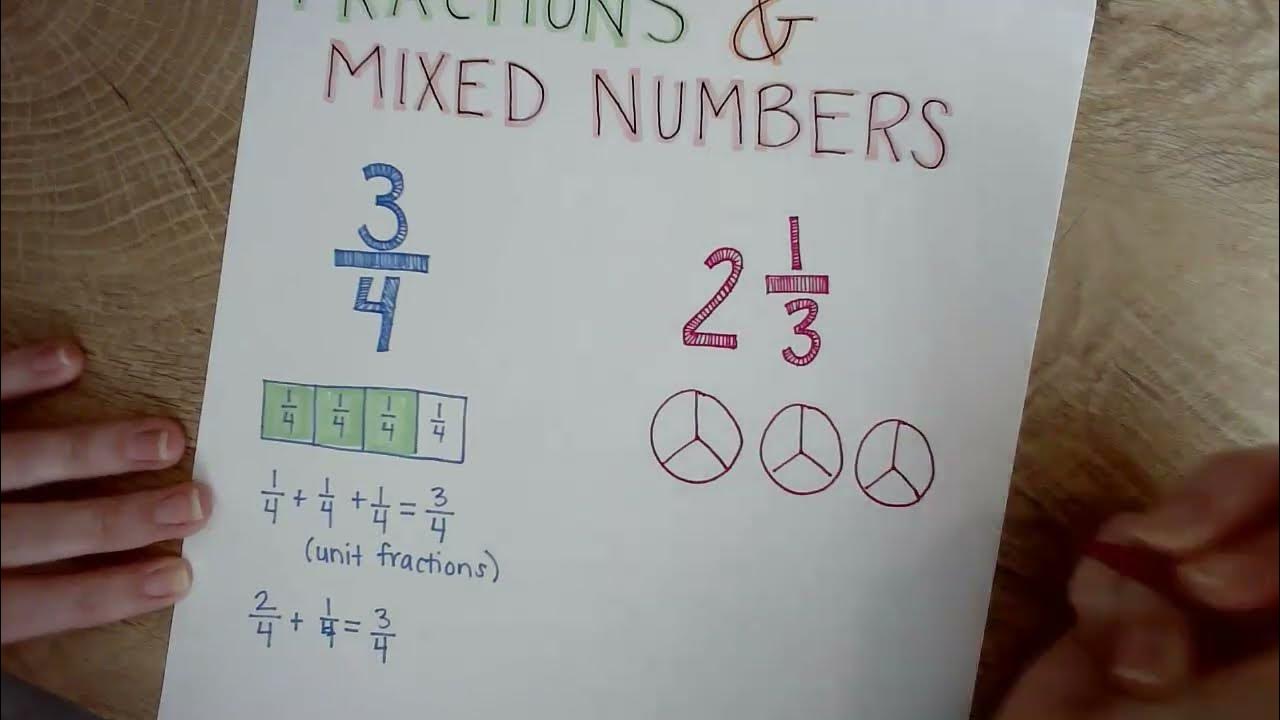 FRACTIONS &
MIXED NUMBERS
3/4
1/4 1/4 1/4 1/4
1/4 + 1/4 + 1/4 = 3/4
(unit fractions)
2/4 + 1/4 = 3/4
2 1/3